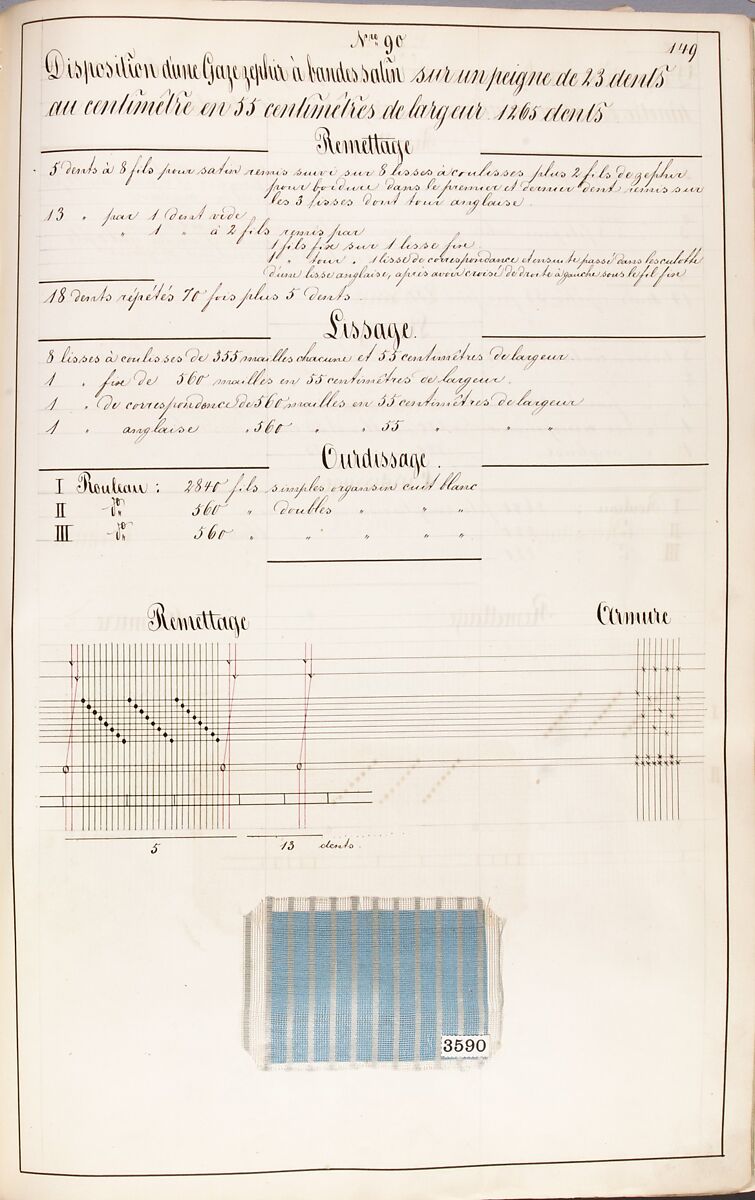 Nro 90
149
Disposition d'une Gaze zephir à bandes satin sur un peigne de 23 dents
au centimêtre en 55 centimêtres de largeur. 1265 dents
Remettage
5 dents à 8 fils pour satin remis suivi sur 8 lisses à coulisses plus 2 fils de zephir
pour bordure dans le premier et dernier dent remis sur
les 3 lisses dont tour anglaise.
13 " par 1 dent vide
" 1 " à 2 fils remis par
1 fils fixe sur 1 lisse fixe
1 " tour " 1 lisse de correspondance et ensuite passé dans les culotte
d'une lisse anglaise, après avoir croisé de droite à gauche sous le fil fixe
18 dents répétés 70 fois plus 5 dents.
Lissage.
8 lisses à coulisses de 355 mailles chacune et 55 centimêtres de largeur.
1 " fixe de 560 mailles en 55 centimêtres de largeur.
1 " de correspondance de 560 mailles en 55 centimêtres de largeur
1 " anglaise " 560 " " 55 " " "
Ourdissage.
I Rouleau : 2840 fils simples organsin cuit blanc
II do 560 " doubles " " "
III do 560 " " " " "
Remettage
Armure
5 13 dents.
3590